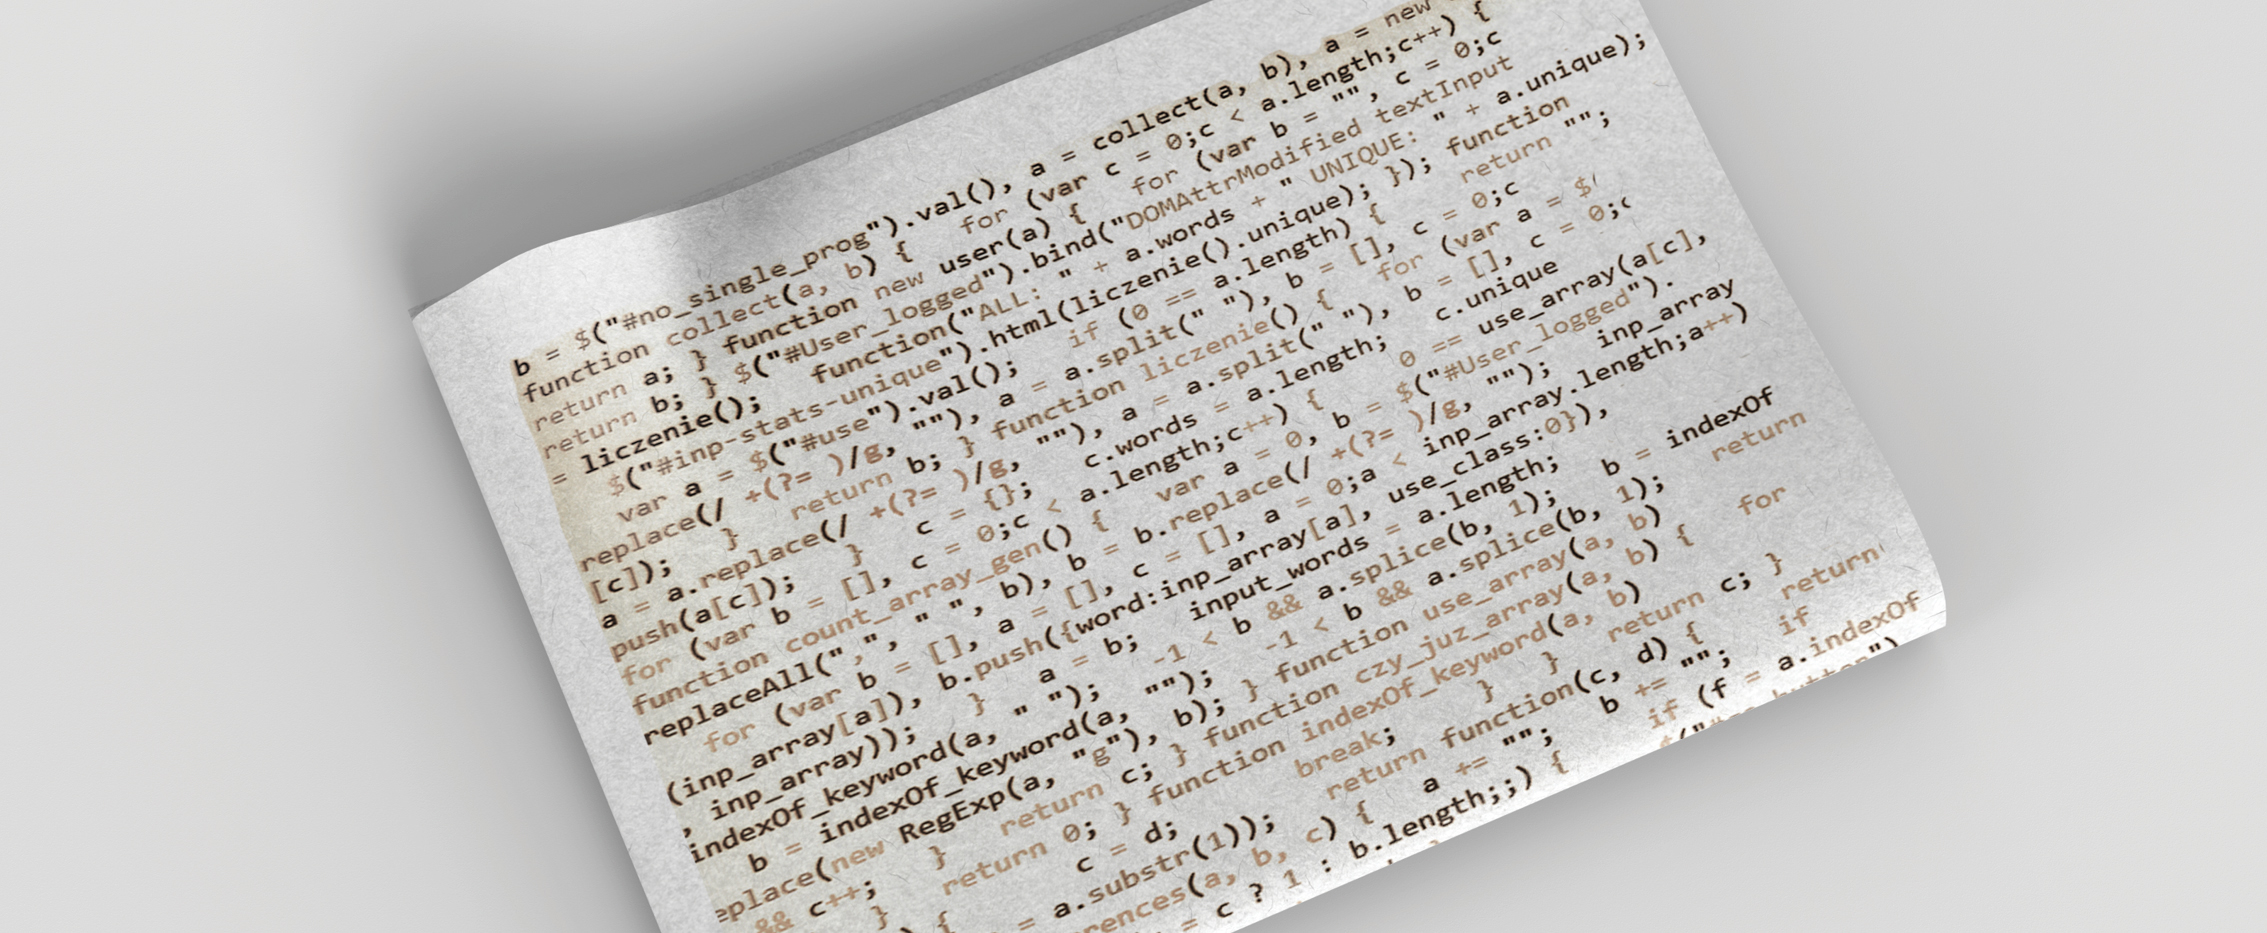 b = $("#no_single_prog").val(), a = collect(a, b), a = new
function collect(a, b) { for (var c = 0;c < a.length;c++) {
return a; } function new user(a) { for (var b = "", c = 0;c
return b; } $("#User_logged").bind("DOMAttrModified textInput
= liczenie(); function("ALL: " + a.words + " UNIQUE: " + a.unique);
$("#inp-stats-unique").html(liczenie().unique); }); function
var a = $("#use").val(); if (0 == a.length) { return "";
replace(/ +(?= )/g, ""), a = a.split(" "), b = [], c = 0;c
[c]); } return b; } function liczenie() { for (var a = $(
a = a.replace(/ +(?= )/g, ""), a = a.split(" "), b = [], c = 0;c
push(a[c]); } c = {}; c.words = a.length; c.unique
for (var b = [], c = 0;c < a.length;c++) { 0 == use_array(a[c],
function count_array_gen() { var a = 0, b = $("#User_logged").
replaceAll(",", " ", b), b = b.replace(/ +(?= )/g, ""); inp_array
for (var b = [], a = [], c = [], a = 0;a < inp_array.length;a++)
(inp_array[a]), b.push({word:inp_array[a], use_class:0}),
, inp_array)); } a = b; input_words = a.length;
indexOf_keyword(a, " "); -1 < b && a.splice(b, 1); b = indexOf
b = indexOf_keyword(a, ""); -1 < b && a.splice(b, 1); return
eplace(new RegExp(a, "g"), b); } function use_array(a, b)
&& c++; } return c; } function czy_juz_array(a, b) { for
} return 0; } function indexOf_keyword(a, b)
c = d; break; } } return c; }
) { = a.substr(1)); return function(c, d) { return
rences(a, b, c) { a += ""; b += ""; if
= c ? 1 : b.length;;) { if (f = a.indexOf